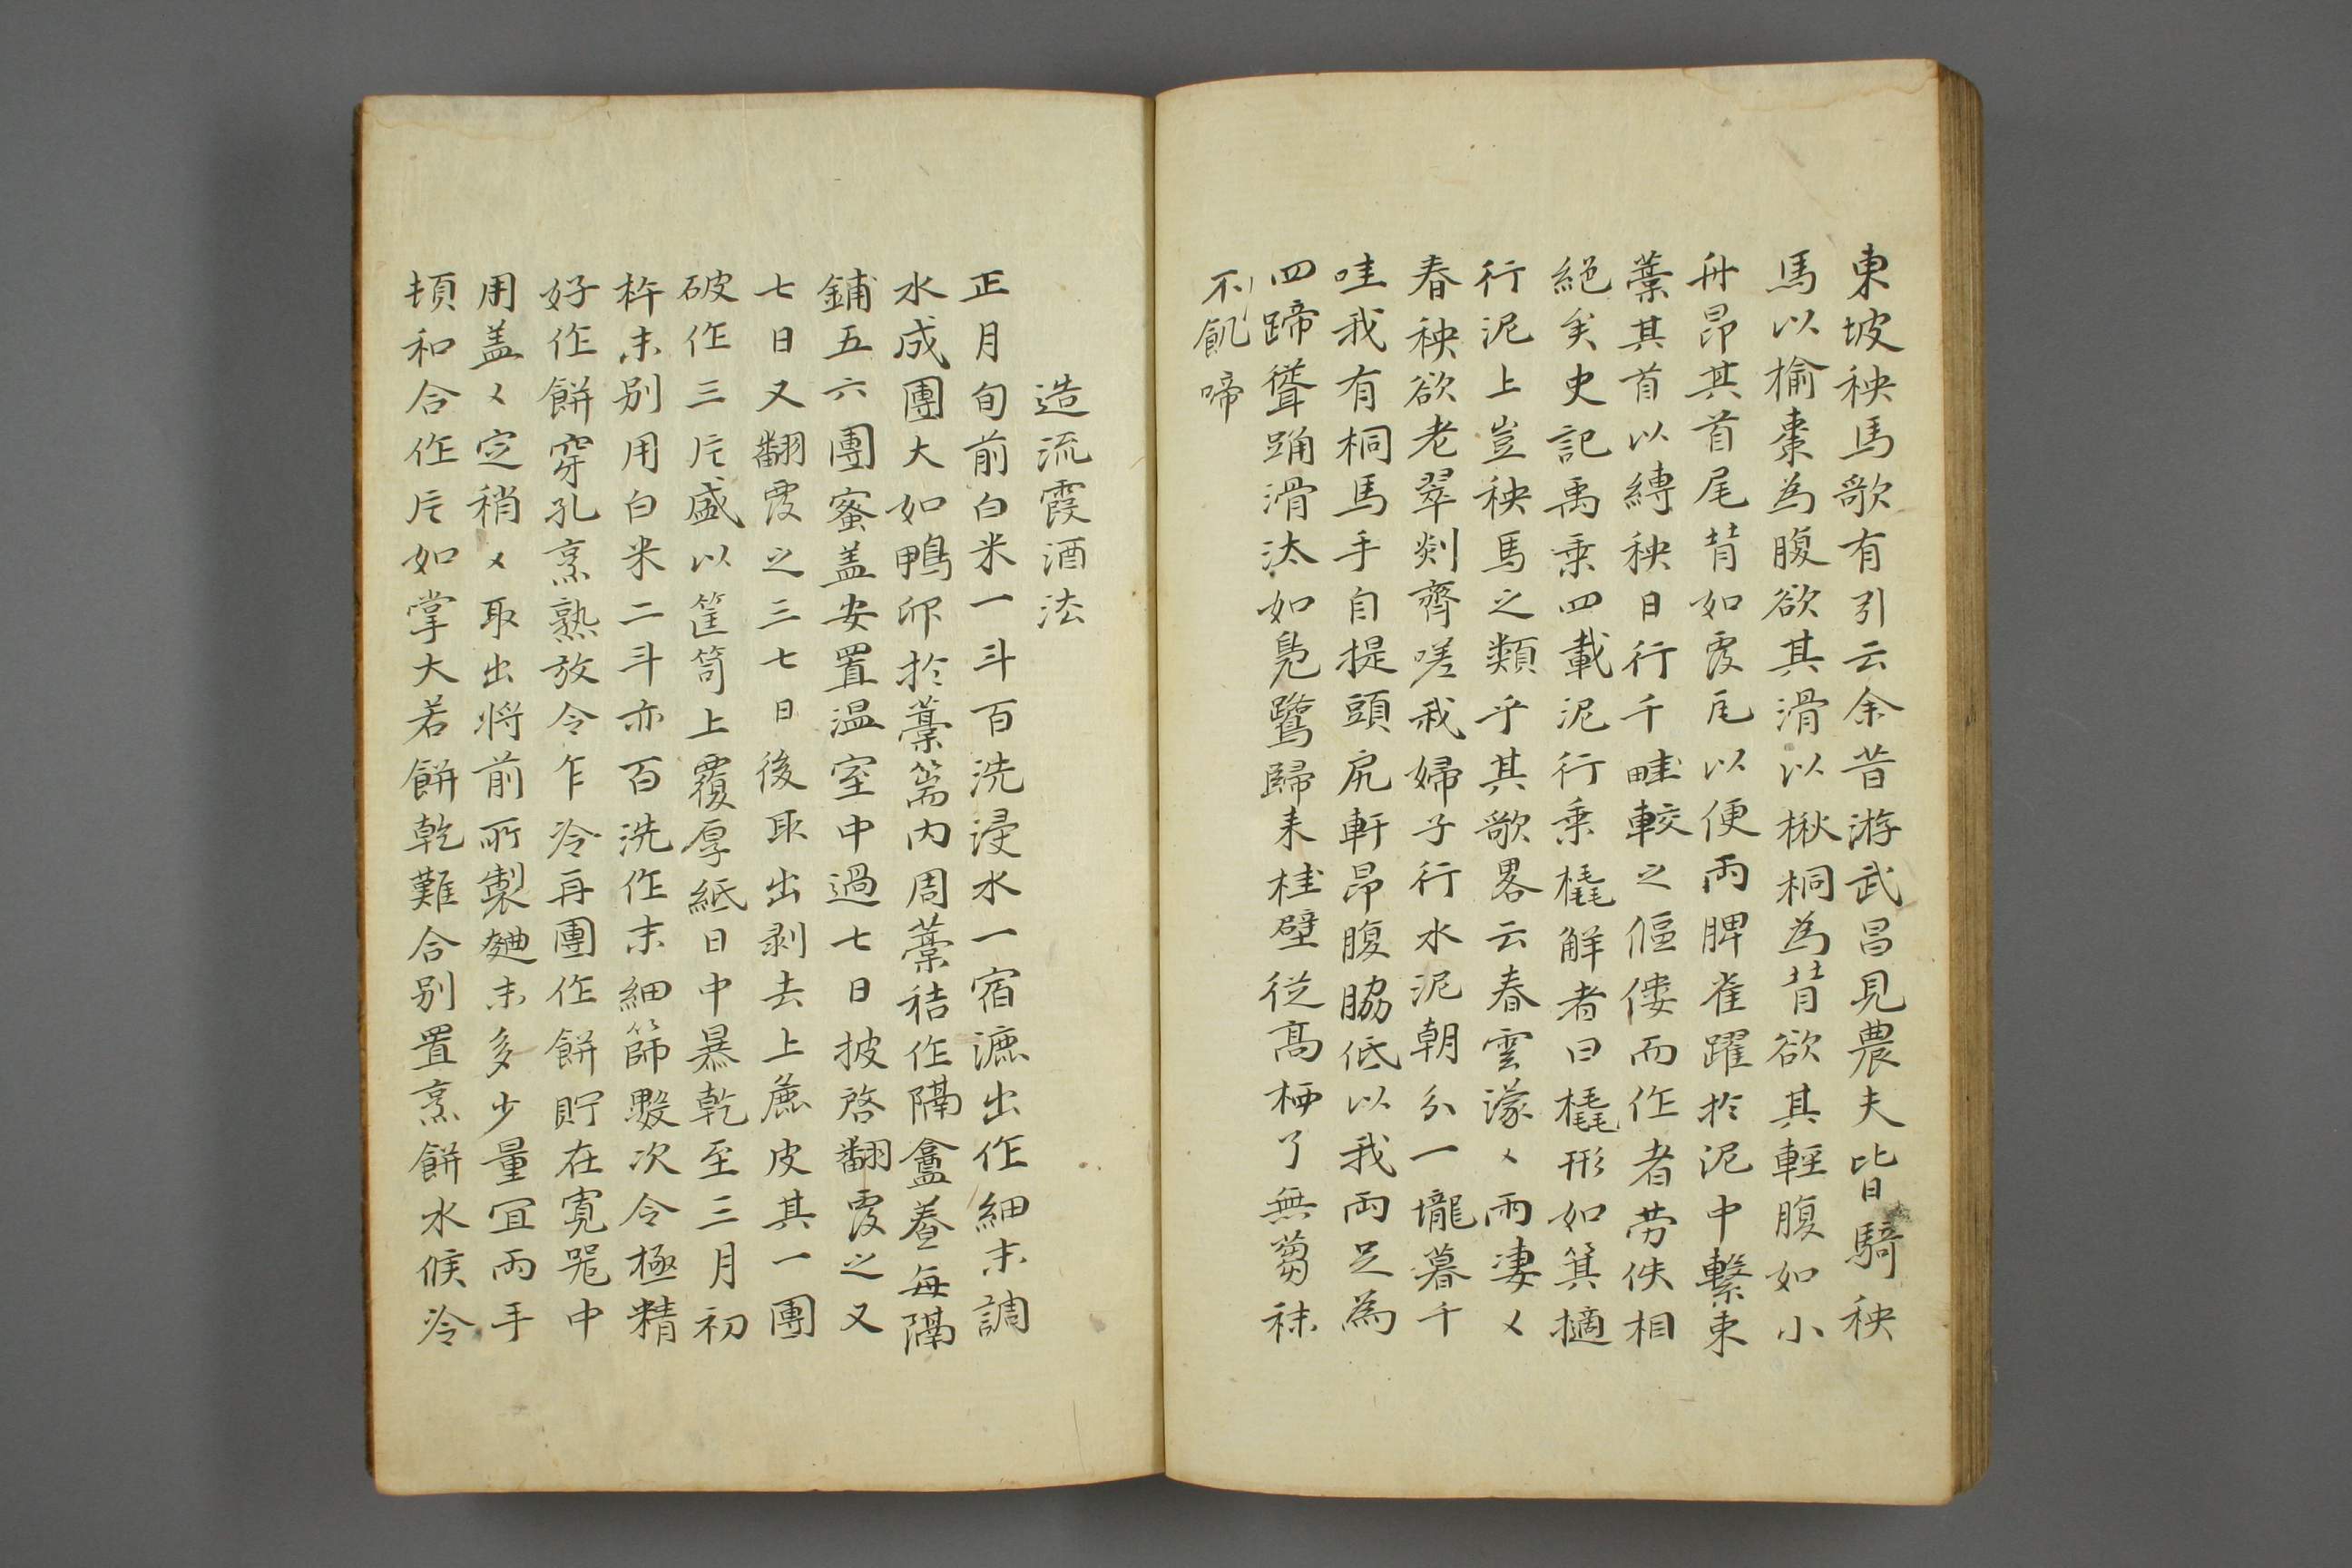 東坡秧馬歌有引云余昔游武昌見農夫皆騎秧
馬以榆棗為腹欲其滑以楸桐為背欲其輕腹如小
舟昂其首尾背如覆瓦以便兩脾雀躍於泥中繫束
藁其首以縳秧日行千畦較之傴僂而作者勞佚相
絕矣史記禹乗四載泥行乗橇解者曰橇形如箕擿
行泥上豈秧馬之類乎其歌畧云春雲濛〻雨凄〻
春秧欲老翠剡齊嗟我婦子行水泥朝分一壠暮千
哇我有桐馬手自提頭尻軒昂腹脇低以我兩足為
四蹄聳踊滑汰如鳧鷖歸来桂壁從髙栖了無蒭秣
不飢啼
造流霞酒法
正月旬前白米一斗百洗浸水一宿漉出作細末調
水成團大如鴨卵於藁篅內周藁秸作隔盦養每隔
鋪五六團蜜盖安置温室中過七日披啓翻覆之又
七日又翻覆之三七日後取出剥去上麁皮其一團
破作三片盛以筐笥上覆厚紙日中暴乾至三月初
杵末别用白米二斗亦百洗作末細篩數次令極精
好作餅穿孔烹熟放令乍冷再團作餅貯在寛器中
用盖〻定稍〻取出将前所製麯末多少量冝兩手
頓和合作片如掌大若餅乾難合别置烹餅水候冷